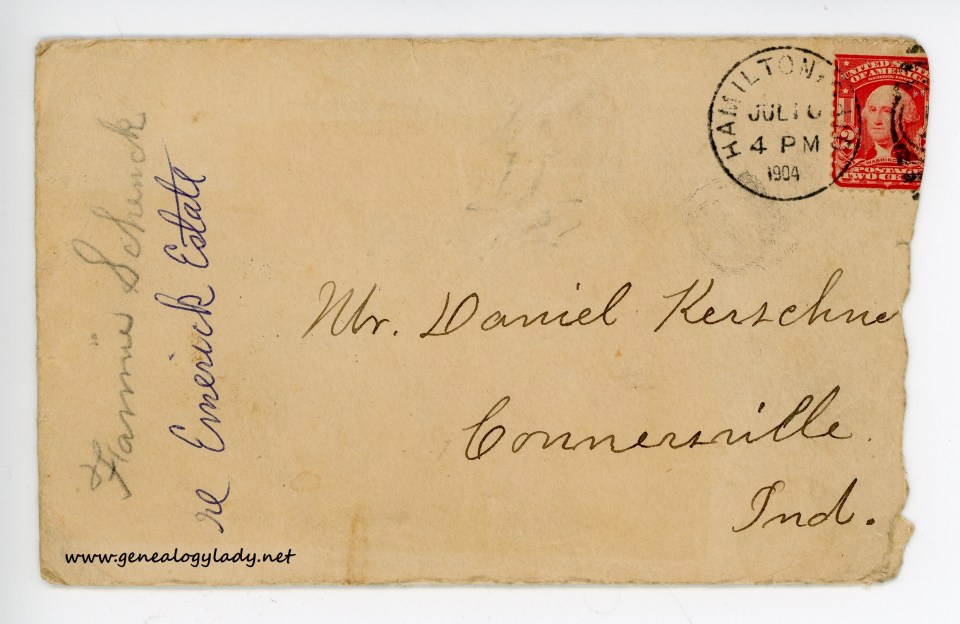 HAMILTON,
JUL 10
4 PM
1904
UNITED STATES
OF AMERICA
POSTAGE
TWO CE
Fannie Schenck
re Emerick Estate
Mr. Daniel Kerschne
Connersville
Ind.
www.genealogylady.net